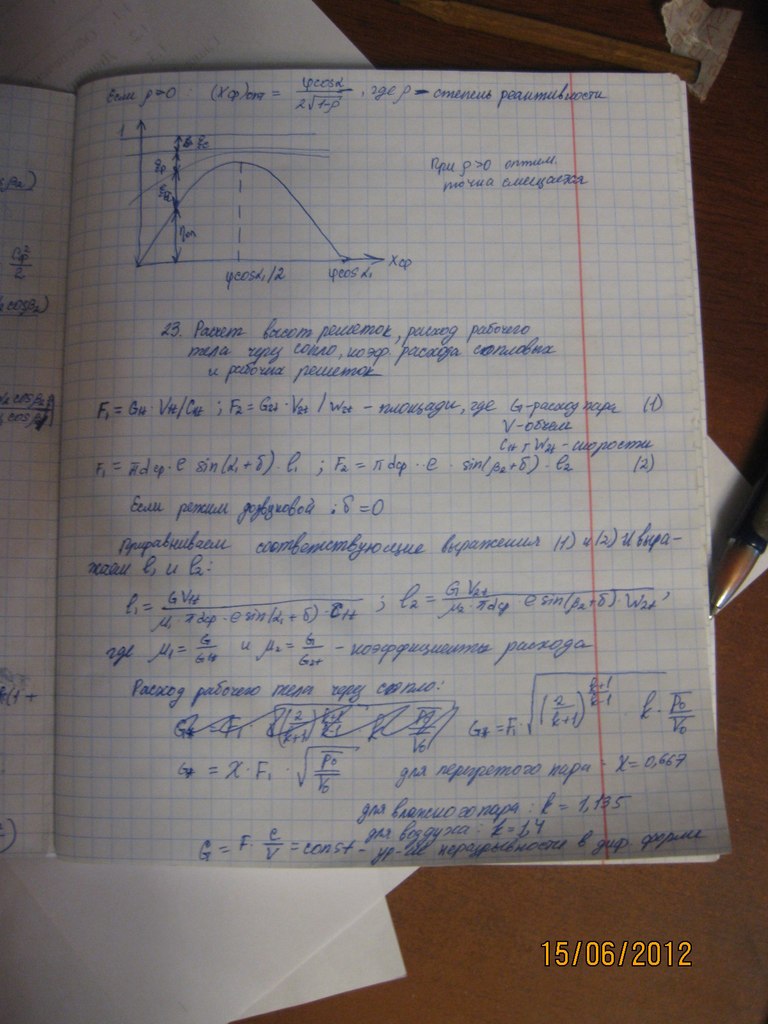 Если ρ>0 (Xф)опт = φcosα / 2√1-ρ, где ρ - степень реактивности
1
При ρ>0 оптим.
точка смещается
ηол
Xф
φcosα₁/2 φcosα₁
23. Расчет высот решеток, расход рабочего
тела через сопло, коэф. расхода сопловых
и рабочих решеток
F₁ = G₁t · V₁t/C₁t ; F₂ = G₂t · V₂t / W₂t - площади, где G-расход пара (1)
V-объем
C₁t и W₂t - скорости
F₁ = πdср · e sin(α₁+δ) · l₁ ; F₂ = πdср · e · sin(β₂+δ) · l₂ (2)
Если режим дозвуковой : δ = 0
Приравниваем соответствующие выражения (1) и (2) и выра-
жаем l₁ и l₂:
l₁ = G V₁t / μ₁ · πdср · e sin(α₁+δ) · C₁t ; l₂ = G V₂t / μ₂ · πdср e sin(β₂+δ) · W₂t ,
где μ₁ = G/G₁t и μ₂ = G/G₂t - коэффициенты расхода
Расход рабочего тела через сопло:
G* = F₁ · √(2/k+1)^(k+1/k-1) k · P₀/V₀
G* = X · F₁ · √P₀/V₀ для перегретого пара - X = 0,667
для влажного пара : k = 1,135
для воздуха : k = 1,4
G = F · c/V = const - ур-ие неразрывности в диф. форме
sβ₂)
Cф²/2
cosβ₂)
15/06/2012